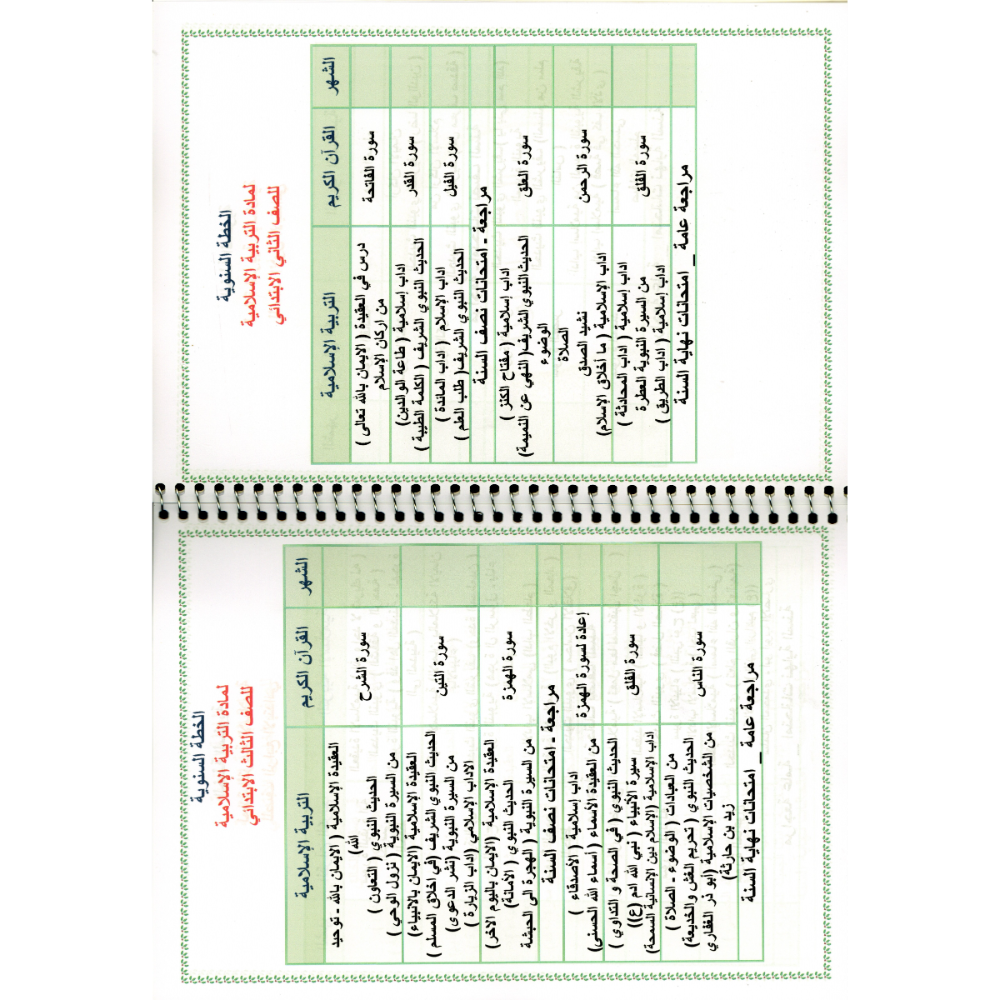 الخطة السنوية
لمادة التربية الإسلامية
للصف الثاني الابتدائي
الشهر
القرآن الكريم
التربية الإسلامية
سورة الفاتحة
درس في العقيدة ( الايمان بالله تعالى )
من اركان الإسلام
سورة القدر
اداب إسلامية ( طاعة الوالدين)
الحديث النبوي الشريف ( الكلمة الطيبة )
سورة الفيل
اداب الإسلام ( اداب المائدة )
الحديث النبوي الشريف( طلب العلم )
مراجعة - امتحانات نصف السنة
سورة العلق
اداب إسلامية ( مفتاح الكنز )
الحديث النبوي الشريف( النهي عن النميمة)
الوضوء
سورة الرحمن
الصلاة
نشيد الصدق
اداب الإسلامية ( ما أخلاق الإسلام)
سورة الفلق
اداب إسلامية ( اداب المحادثة )
من السيرة النبوية العطرة
اداب إسلامية ( اداب الطريق )
مراجعة عامة _ امتحانات نهاية السنة
الخطة السنوية
لمادة التربية الإسلامية
للصف الثالث الابتدائي
الشهر
القرآن الكريم
التربية الإسلامية
سورة الشرح
العقيدة الإسلامية ( الايمان بالله - توحيد
الله)
الحديث النبوي ( التعاون )
من السيرة النبوية ( نزول الوحي )
سورة التين
العقيدة الإسلامية (الايمان بالانبياء)
الحديث النبوي الشريف (في اخلاق المسلم )
من السيرة النبوية (نشر الدعوى)
الاداب الإسلامي (اداب الزيارة )
سورة الهمزة
العقيدة الإسلامية (الايمان باليوم الاخر)
الحديث النبوي ( الأمانة)
من السيرة النبوية ( الهجرة الى الحبشة
مراجعة - امتحانات نصف السنة
إعادة لسورة الهمزة
اداب إسلامية ( الأصدقاء )
من العقيدة الأسماء ( أسماء الله الحسنى)
سورة الفلق
الحديث النبوي ( في الصحة و التداوي )
سيرة الأنبياء ( نبي الله ادم (ع))
اداب الإسلامية (الإسلام دين الإنسانية السمحة)
سورة الناس
من العبادات (الوضوء - الصلاة )
الحديث النبوي ( تحريم الغش والخديعة)
من الشخصيات الإسلامية (ابو ذر الغفاري
زيد بن حارثة)
مراجعة عامة _ امتحانات نهاية السنة